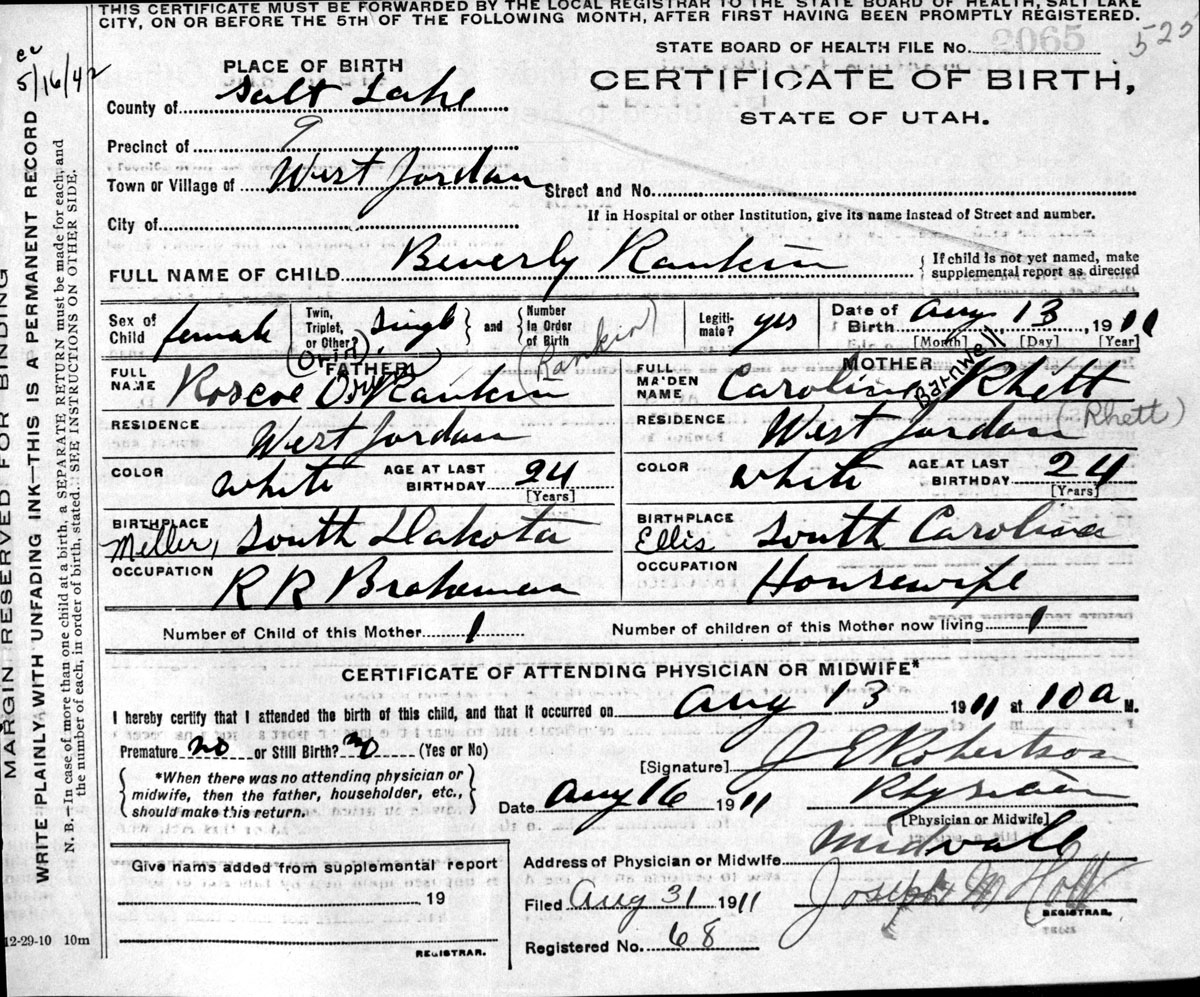 THIS CERTIFICATE MUST BE FORWARDED BY THE LOCAL REGISTRAR TO THE STATE BOARD OF HEALTH, SALT LAKE
CITY, ON OR BEFORE THE 5TH OF THE FOLLOWING MONTH, AFTER FIRST HAVING BEEN PROMPTLY REGISTERED.
STATE BOARD OF HEALTH FILE No. 2065
525
5/16/42
PLACE OF BIRTH
CERTIFICATE OF BIRTH,
STATE OF UTAH.
County of Salt Lake
Precinct of 9
Town or Village of West Jordan Street and No.
If in Hospital or other Institution, give its name instead of Street and number.
City of
FULL NAME OF CHILD Beverly Rankin { If child is not yet named, make supplemental report as directed
Sex of Child female Twin, Triplet, or Other? single and Number In Order of Birth Legiti-mate? yes Date of Birth Aug 13, 1911
[Month] [Day] [Year]
(Orin) (Rankin) Barnwell
FATHER
FULL NAME Roscoe Orin Rankin
RESIDENCE West Jordan
COLOR white AGE AT LAST BIRTHDAY 24
[Years]
BIRTHPLACE Meller, South Dakota
OCCUPATION R R Brakeman
MOTHER
FULL MAIDEN NAME Caroline Rhett
(Rhett)
RESIDENCE West Jordan
COLOR white AGE AT LAST BIRTHDAY 24
[Years]
BIRTHPLACE Ellis South Carolina
OCCUPATION Housewife
Number of Child of this Mother 1 Number of children of this Mother now living 1
CERTIFICATE OF ATTENDING PHYSICIAN OR MIDWIFE*
I hereby certify that I attended the birth of this child, and that it occurred on Aug 13 1911 at 10 a M.
Premature no or Still Birth? no (Yes or No)
[Signature] J E Robertson
*When there was no attending physician or
midwife, then the father, householder, etc.,
should make this return.
Date Aug 16 1911 Physician
[Physician or Midwife]
Address of Physician or Midwife Midvale
Give name added from supplemental report
19
REGISTRAR.
Filed Aug 31 1911 Joseph M Holt
REGISTRAR.
Registered No. 68
12-29-10 10m
MARGIN RESERVED FOR BINDING
WRITE PLAINLY WITH UNFADING INK—THIS IS A PERMANENT RECORD
N. B.—In case of more than one child at a birth, a SEPARATE RETURN must be made for each, and
the number of each, in order of birth, stated. SEE INSTRUCTIONS ON OTHER SIDE.